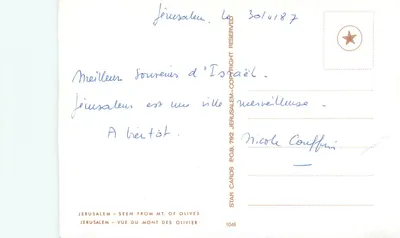 Jérusalem. le 30/4/87
Meilleur souvenir d'Israël.
Jérusalem est une ville merveilleuse.
A bientôt.
Nicole
STAR CARDS P.O.B. 792 JERUSALEM-COPYRIGHT RESERVED
JERUSALEM – SEEM FROM MT. OF OLIVES
JERUSALEM – VUE DU MONT DES OLIVIER